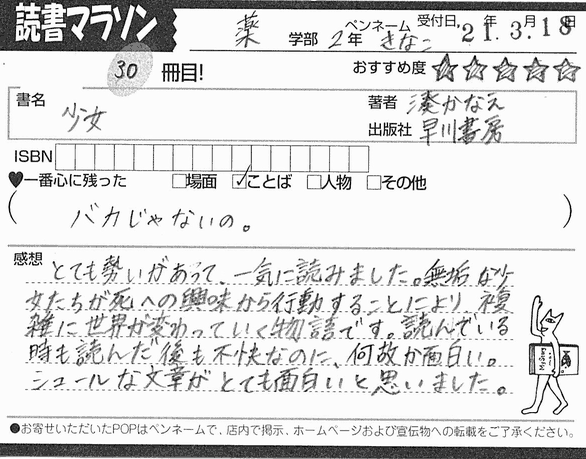 読書マラソン
薬 学部 2年 ペンネーム きなこ 受付日 '21年3月18日
30 冊目!
おすすめ度 ☆☆☆☆☆
書名 少女
著者 湊かなえ
出版社 早川書房
ISBN
♥一番心に残った □場面 ☑ことば □人物 □その他
( バカじゃないの。 )
感想
とても勢いがあって、一気に読みました。無垢な少
女たちが死への興味から行動することにより、複
雑に世界が変わっていく物語です。読んでいる
時も読んだ後も不快なのに、何故か面白い。
シュールな文章がとても面白いと思いました。
●お寄せいただいたPOPはペンネームで、店内で掲示、ホームページおよび宣伝物への転載をご了承ください。